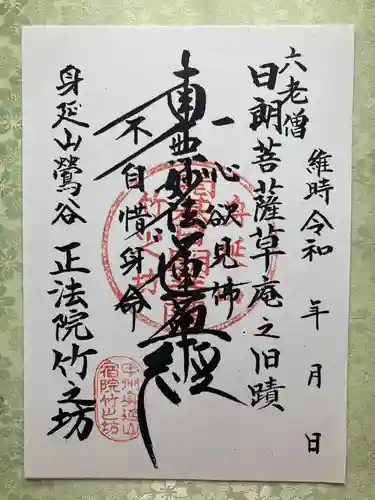 維時令和　年　月　日
六老僧
日朗菩薩草庵之旧蹟
一心欲見佛
南無妙法蓮華経
不自惜身命
身延山鶯谷　正法院竹之坊
甲州身延山
宿院竹之坊